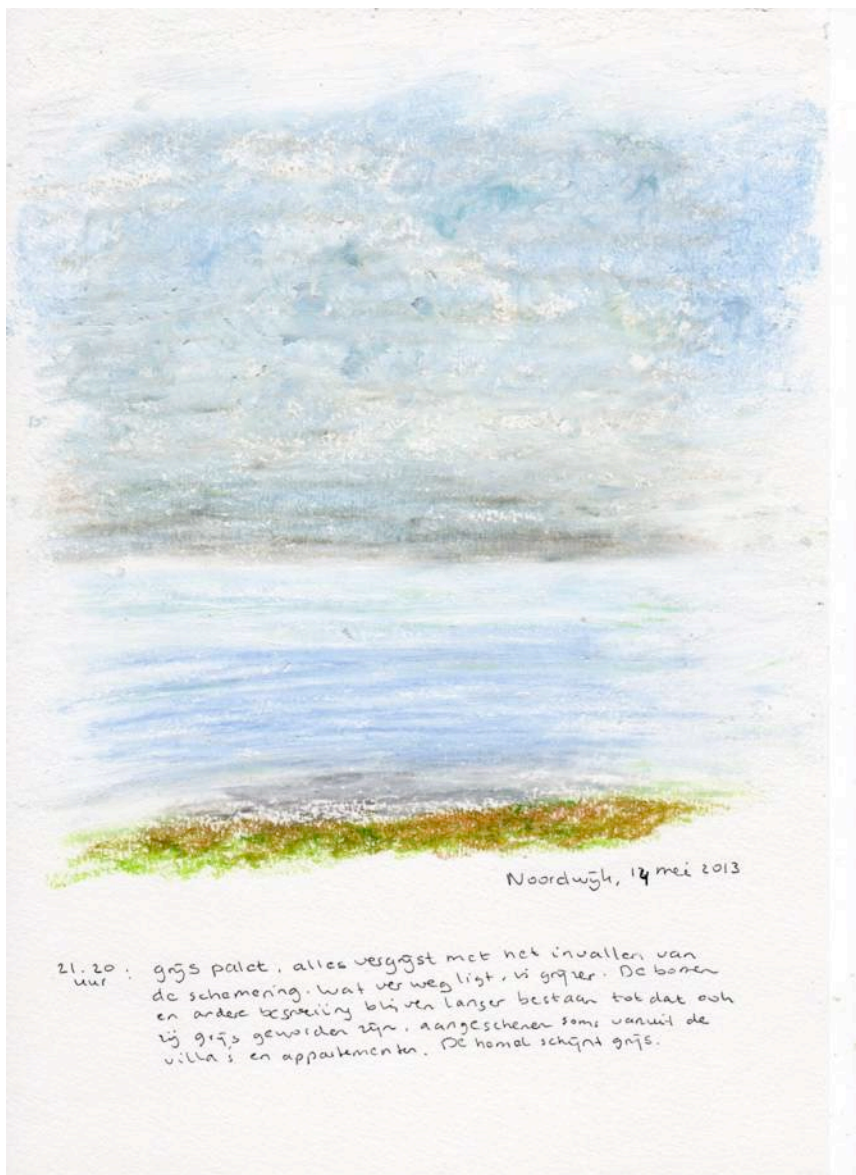 Noordwijk, 14 mei 2013
21.20 : grijs palet, alles vergrijst met het invallen van
uur de schemering. Wat ver weg ligt, is grijzer. De bomen
en andere begroeiing blijven langer bestaan totdat ook
zij grijs geworden zijn, aangeschenen soms vanuit de
villa's en appartementen. De hemel schijnt grijs.